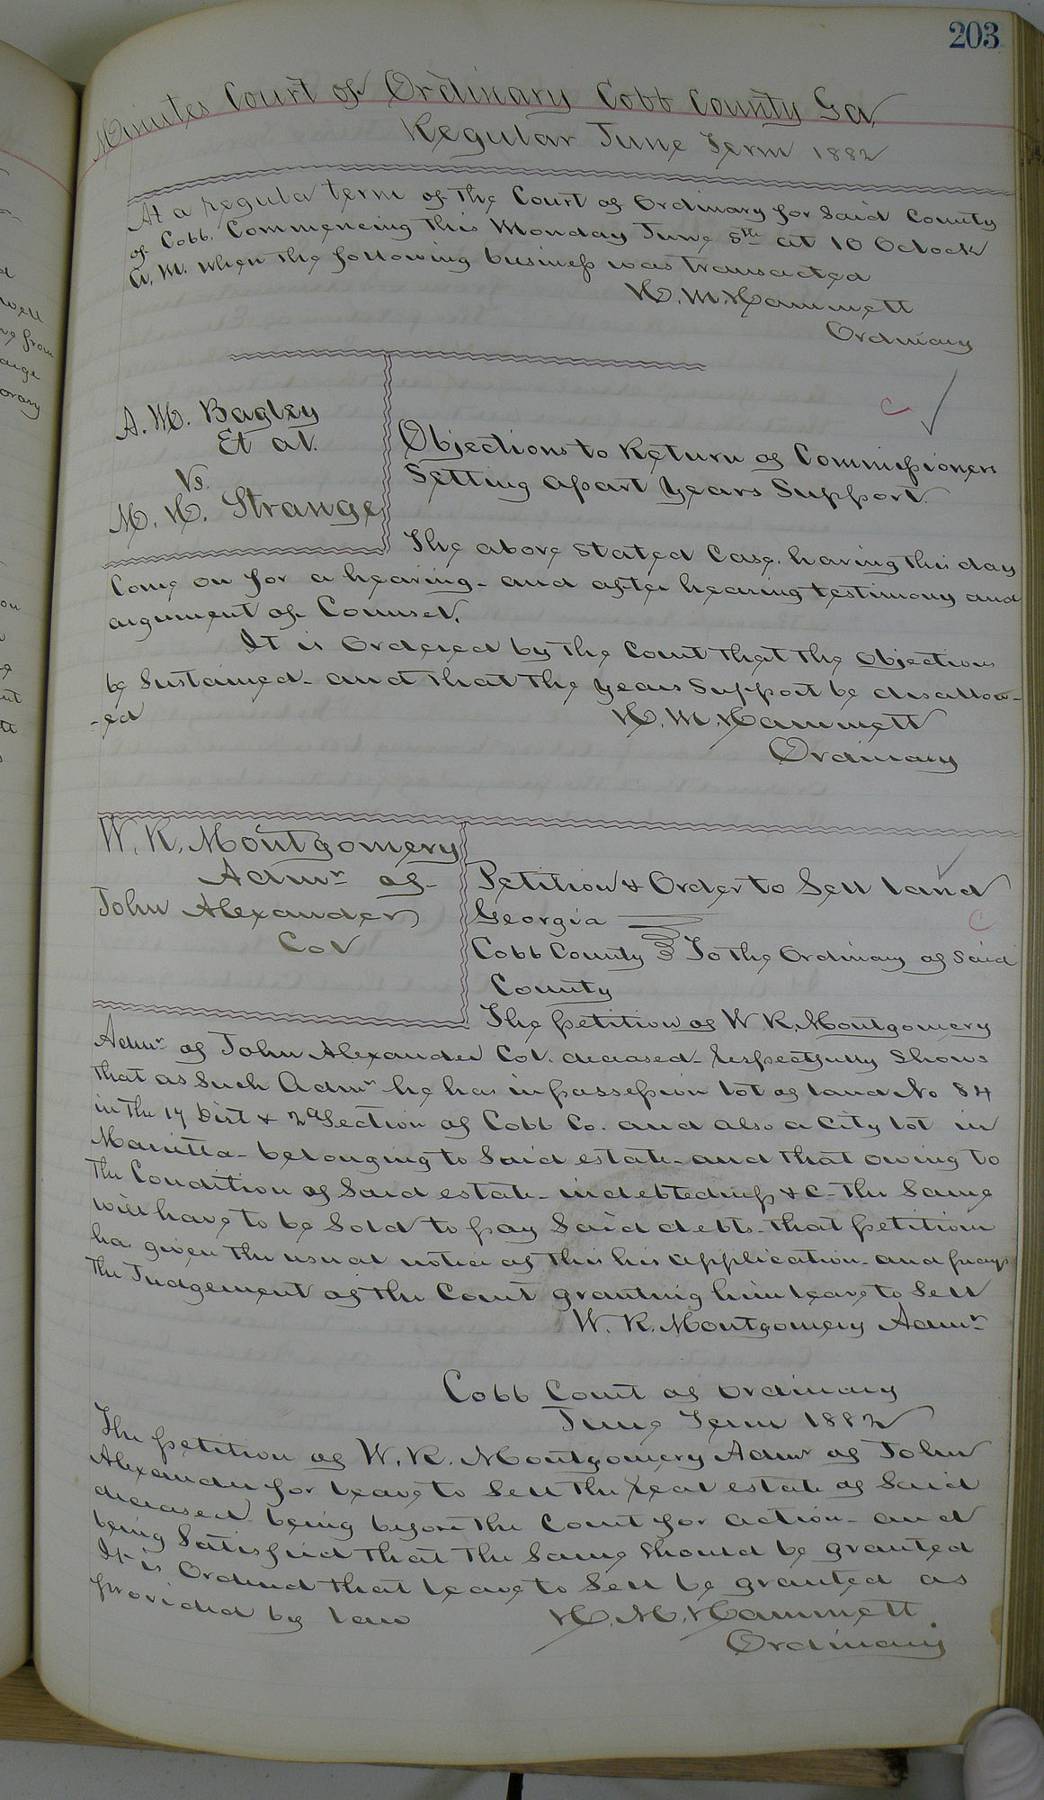 203
Minutes Court of Ordinary Cobb County Ga
Regular June Term 1882
At a regular term of the Court of Ordinary for Said County
of Cobb. Commencing this Monday June 5th at 10 Oclock
A. M. when the following business was transacted
H. M. Hammett
Ordinary
A. M. Bagley
Et al.
Vs.
M. H. Strange
Objections to Return of Commissioners
Setting apart Years Support
The above stated Case. having this day
Come on for a hearing - and after hearing testimony and
argument of Counsel.
It is Ordered by the Court that the Objections
be Sustained - and that the years Support be disallow-
-ed
H. M. Hammett
Ordinary
W. R. Montgomery
Admr of
John Alexander
Col
Petition & Order to Sell land
Georgia
Cobb County } To the Ordinary of Said
County
The petition of W R. Montgomery
Admr of John Alexander Col. deceased - respectfully Shows
that as Such Admr he has in possession lot of land No 84
in the 17 Dist & 2d Section of Cobb Co. and also a City lot in
Marietta - belonging to Said estate - and that owing to
the Condition of Said estate - indebtedness &C - the Same
will have to be Sold to pay Said debts - that petition
has given the usual notice of this his application - and prays
the Judgement of the Court granting him leave to Sell
W. R. Montgomery Admr
Cobb Court of Ordinary
June Term 1882
The petition of W. R. Montgomery Admr of John
Alexander for leave to Sell the real estate of Said
deceased - being before the Court for action - and
being Satisfied that the Same Should be granted
It is Ordered that leave to Sell be granted as
provided by law
H. M. Hammett.
Ordinary